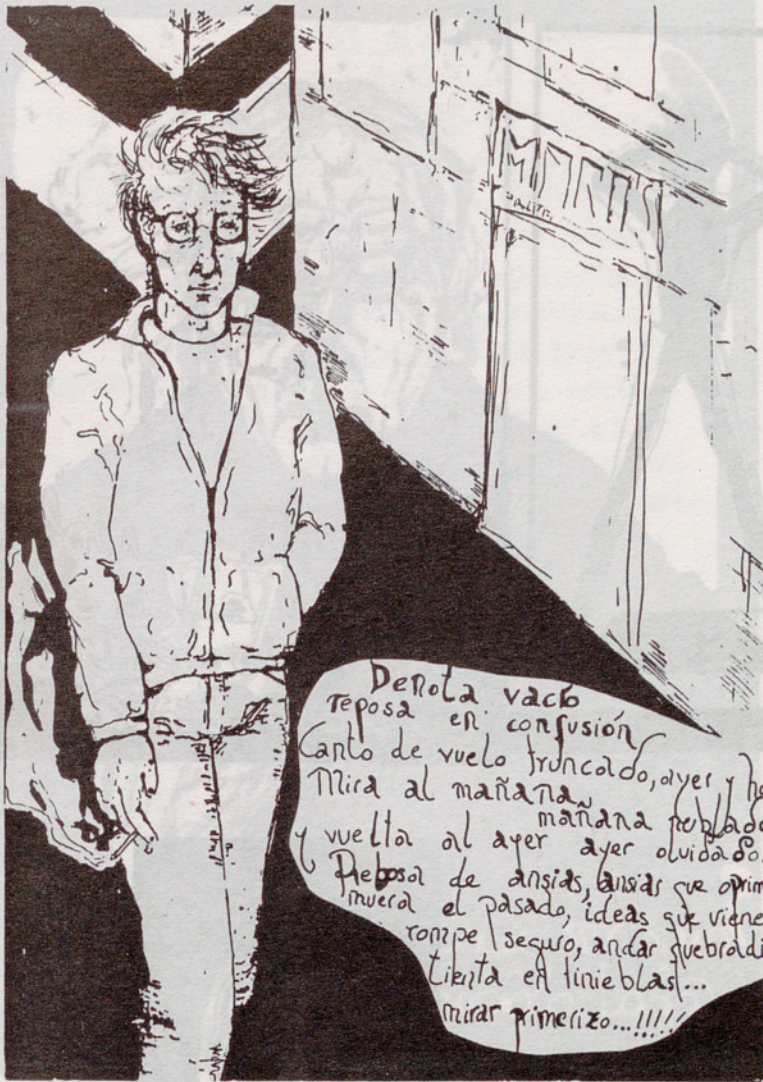 Denota vacío
reposa en confusión
Canto de vuelo truncado, ayer y ho
Mira al mañana
mañana nublado
y vuelta al ayer ayer olvidado.
Rebosa de ansias, ansias que oprim
muera el pasado, ideas que viene
rompe seguro, andar quebradi
tienta en tinieblas...
mirar primerizo...!!!!!